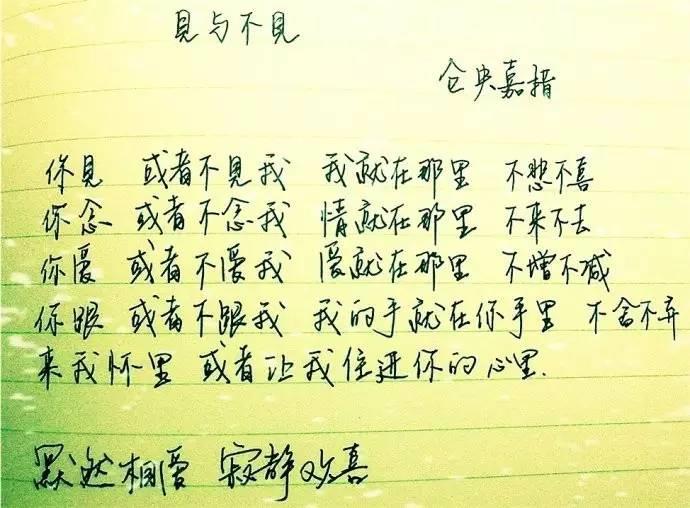 見与不見
仓央嘉措
你見 或者不見我 我就在那里 不悲不喜
你念 或者不念我 情就在那里 不来不去
你爱 或者不爱我 爱就在那里 不增不减
你跟 或者不跟我 我的手就在你手里 不舍不弃
来我怀里 或者让我住进你的心里.
默然相爱 寂静欢喜